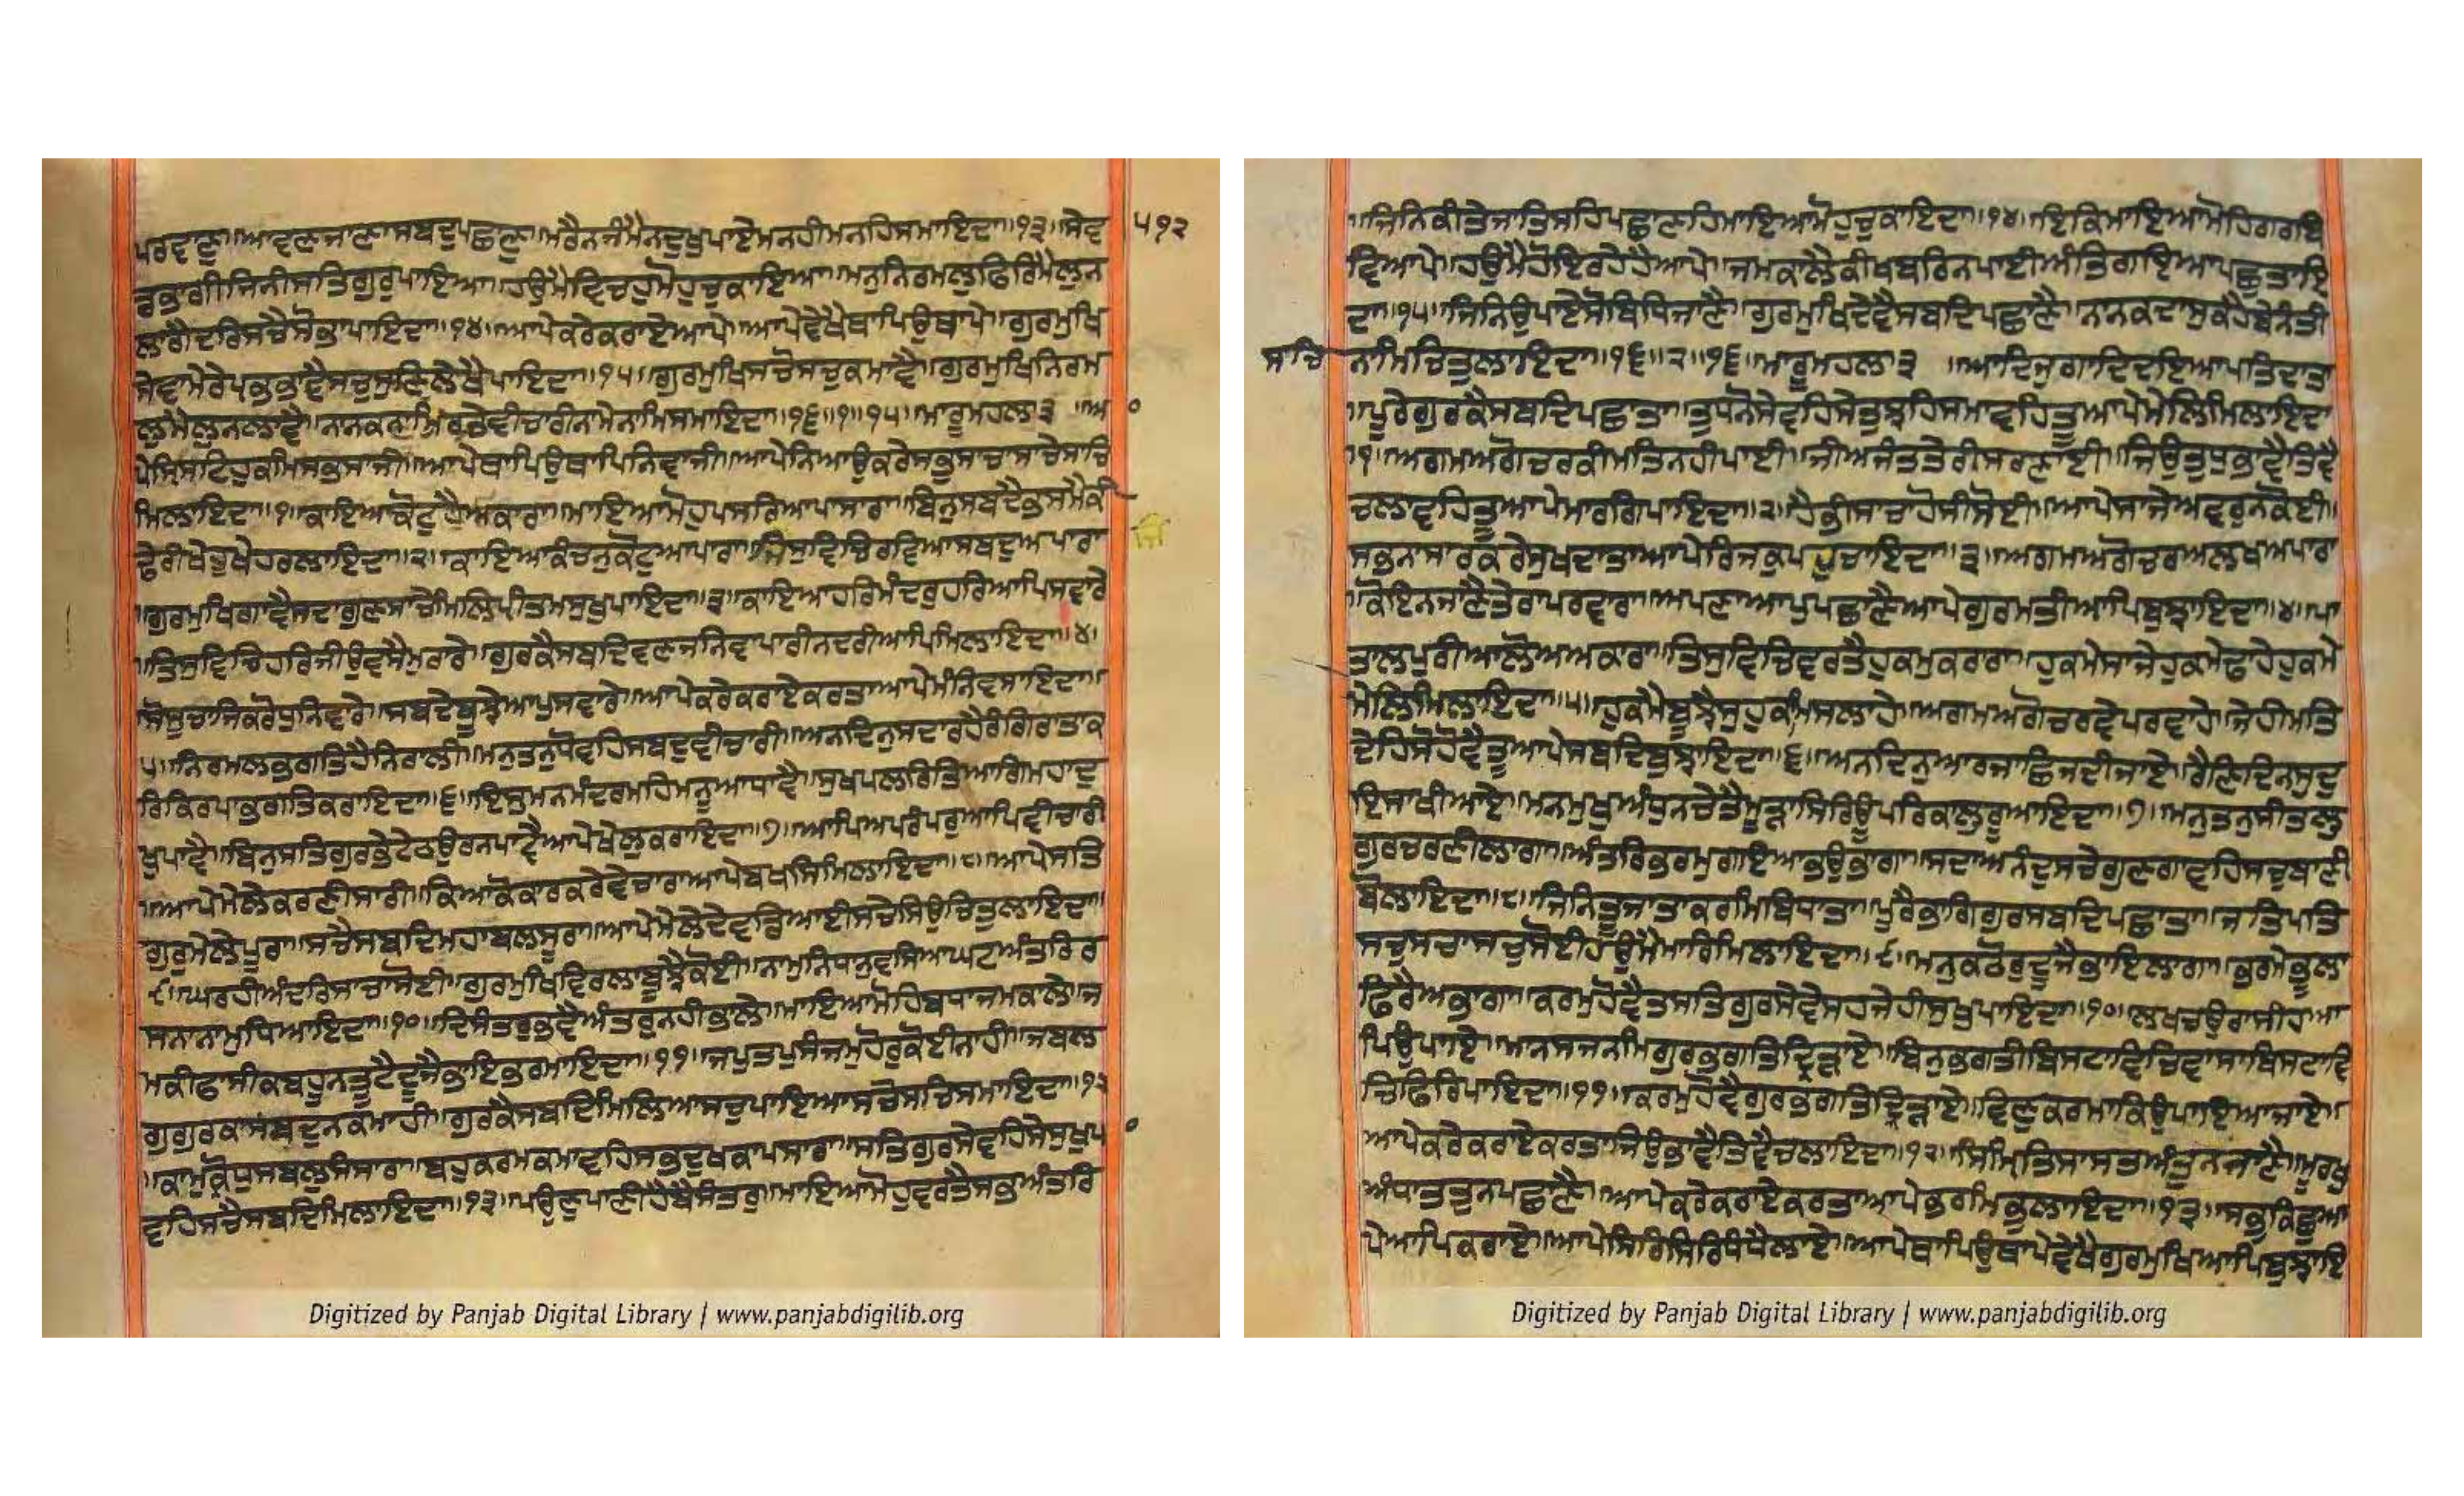 ਪਰਵਾਣੁ॥ਆਵਣਜਾਣਾਸਬਦੁਪਛਾਣੁ॥ਮਰੈਨਜੰਮੈਨਦੁਖੁਪਾਏਮਨਹੀਮਨਹਿਸਮਾਇਦਾ॥੧੩॥ਸੇਵ
ੜਭਾਗੀਜਿਨੀਸਤਿਗੁਰੁਪਾਇਆ॥ਹਉਮੈਵਿਚਹੁਮੋਹੁਚੁਕਾਇਆ॥ਮਨੁਨਿਰਮਲੁਫਿਰਿਮੈਲੁਨ
ਲਾਗੈਦਰਿਸਚੈਸੋਭਾਪਾਇਦਾ॥੧੪॥ਆਪੇਕਰੇਕਰਾਏਆਪੇ॥ਆਪੇਵੇਖੈਥਾਪਿਉਥਾਪੇ॥ਗੁਰਮੁਖਿ
ਸੇਵਾਮੇਰੇਪ੍ਰਭਭਾਵੈਸਚੁਸੁਣਿਲੇਖੈਪਾਇਦਾ॥੧੫॥ਗੁਰਮੁਖਿਸਚੋਸਚੁਕਮਾਵੈ॥ਗੁਰਮੁਖਿਨਿਰਮ
ਲੁਮੈਲੁਨਲਾਵੈ॥ਨਨਕਣਾਮਿਰਤੇਵੀਚਾਰੀਨਾਮੇਨਾਮਿਸਮਾਇਦਾ॥੧੬॥੧॥੧੫॥ਮਾਰੂਮਹਲਾ੩ ॥ਆ
ਪੇਸ੍ਰਿਸਟਿਹੁਕਮਿਸਭਸਾਜੀ॥ਆਪੇਥਾਪਿਉਥਾਪਿਨਿਵਾਜੀ॥ਆਪੇਨਿਆਉਕਰੇਸਭੁਸਾਚਾਸਾਚੇਸਾਚਿ
ਮਿਲਾਇਦਾ॥੧॥ਕਾਇਆਕੋਟੁਹੈਅਕਾਰਾ॥ਮਾਇਆਮੋਹੁਪਸਰਿਆਪਾਸਾਰਾ॥ਬਿਨੁਸਬਦੈਭਸਮੈਕੀ
ਢੇਰੀਖੇਹੂਖੇਹਰਲਾਇਦਾ॥੨॥ਕਾਇਆਕੰਚਨੁਕੋਟੁਅਪਾਰਾ॥ਜਿਸੁਵਿਚਿਰਵਿਆਸਬਦੁਅਪਾਰਾ
॥ਗੁਰਮੁਖਿਗਾਵੈਸਦਾਗੁਣਸਾਚੇਮਿਲਿਪ੍ਰੀਤਮਸੁਖੁਪਾਇਦਾ॥੩॥ਕਾਇਆਹਰਿਮੰਦਰੁਹਰਿਆਪਿਸਵਾਰੇ
॥ਤਿਸੁਵਿਚਿਹਰਿਜੀਉਵਸੈਮੁਰਾਰੇ॥ਗੁਰਕੈਸਬਦਿਵਣਜਨਿਵਾਪਾਰੀਨਦਰੀਆਪਿਮਿਲਾਇਦਾ॥੪॥
ਸੋਸੂਚਾਜਿਕਰੋਧੁਨਿਵਾਰੇ॥ਸਬਦੇਬੂਝੈਆਪੁਸਵਾਰੇ॥ਆਪੇਕਰੇਕਰਾਏਕਰਤਾਆਪੇਮੰਨਿਵਸਾਇਦਾ॥
੫॥ਨਿਰਮਲਭਗਤਿਹੈਨਿਰਾਲੀ॥ਮਨੁਤਨੁਧੋਵਹਿਸਬਦੁਵੀਚਾਰੀ॥ਅਨਦਿਨੁਸਦਾਰਹੈਰੰਗਿਰਾਤਾਕ
ਰਿਕਿਰਪਾਭਗਤਿਕਰਾਇਦਾ॥੬॥ਇਸੁਮਨਮੰਦਰਮਹਿਮਨੂਆਧਾਵੈ॥ਸੁਖਪਲਰਿਤਿਆਗਿਮਹਾਦੁ
ਖੁਪਾਵੈ॥ਬਿਨੁਸਤਿਗੁਰਭੇਟੇਠਉਰਨਪਾਵੈਆਪੇਖੇਲੁਕਰਾਇਦਾ॥੭॥ਆਪਿਅਪਰੰਪਰੁਆਪਿਵੀਚਾਰੀ
॥ਆਪੇਮੇਲੇਕਰਣੀਸਾਰੀ॥ਕਿਆਕੋਕਾਰਕਰੇਵੇਚਾਰਾਆਪੇਬਖਸਿਮਿਲਾਇਦਾ॥੮॥ਆਪੇਸਤਿ
ਗੁਰੁਮੇਲੇਪੂਰਾ॥ਸਚੈਸਬਦਿਮਹਾਬਲਸੂਰਾ॥ਆਪੇਮੇਲੇਦੇਵਡਿਆਈਸਚੇਸਿਉਚਿਤੁਲਾਇਦਾ॥
੯॥ਘਰਹੀਅੰਦਰਿਸਾਚਾਸੋਈ॥ਗੁਰਮੁਖਿਵਿਰਲਾਬੂਝੈਕੋਈ॥ਨਾਮੁਨਿਧਾਨੁਵਸਿਆਘਟਅੰਤਰਿਰ
ਸਨਾਨਾਮੁਧਿਆਇਦਾ॥੧੦॥ਦਿਸੰਤਰੁਭਵੈਅੰਤਰੁਨਹੀਭਾਲੇ॥ਮਾਇਆਮੋਹਿਬਧਾਜਮਕਾਲੇ॥ਜ
ਮਕੀਫਾਸੀਕਬਹੂਨਤੂਟੈਦੂਜੈਭਾਇਭਰਮਾਇਦਾ॥੧੧॥ਜਪੁਤਪੁਸੰਜਮੁਹੋਰੁਕੋਈਨਾਹੀ॥ਜਬਲ
ਗੁਗੁਰਕਾਸਬਦੁਨਕਮਾਹੀ॥ਗੁਰਕੈਸਬਦਿਮਿਲਿਆਸਚੁਪਾਇਆਸਚੋਸਚਿਸਮਾਇਦਾ॥੧੨
॥ਕਾਮੁਕ੍ਰੋਧੁਸਬਲੁਸੰਸਾਰਾ॥ਬਹੁਕਰਮਕਮਾਵਹਿਸਭਦੁਖਕਾਪਸਾਰਾ॥ਸਤਿਗੁਰਸੇਵਹਿਸੇਸੁਖੁਪ
ਵਹਿਸਚੈਸਬਦਿਮਿਲਾਇਦਾ॥੧੩॥ਪਉਣੁਪਾਣੀਹੈਬੈਸੰਤਰੁ॥ਮਾਇਆਮੋਹੁਵਰਤੈਸਭਅੰਤਰਿ
੫੧੨
Digitized by Panjab Digital Library | www.panjabdigilib.org
॥ਜਿਨਿਕੀਤੇਜਾਤਿਸਹਿਪਛਾਣਹਿਮਾਇਆਮੋਹੁਚੁਕਾਇਦਾ॥੧੪॥ਇਕਿਮਾਇਆਮੋਹਿਗਰਬਿ
ਵਿਆਪੇ॥ਹਉਮੈਹੋਇਰਹੇਹੈਆਪੇ॥ਜਮਕਾਲੈਕੀਖਬਰਿਨਪਾਈਅੰਤਿਗਇਆਪਛੁਤਾਇ
ਦਾ॥੧੫॥ਜਿਨਿਉਪਾਏਸੋਬਿਧਿਜਾਣੈ॥ਗੁਰਮੁਖਿਦੇਵੈਸਬਦਿਪਛਾਣੈ॥ਨਨਕਦਾਸੁਕਹੈਬੇਨੰਤੀ
ਸਾਚਿ ਨਾਮਿਚਿਤੁਲਾਇਦਾ॥੧੬॥੨॥੧੬॥ਮਾਰੂਮਹਲਾ੩ ॥ਆਦਿਜੁਗਾਦਿਦਇਆਪਤਿਦਾਤਾ
॥ਪੂਰੇਗੁਰਕੈਸਬਦਿਪਛਾਤਾ॥ਤੁਧਨੋਸੇਵਹਿਸੇਤੁਝਹਿਸਮਾਵਹਿਤੂਆਪੇਮੇਲਿਮਿਲਾਇਦਾ
॥੧॥ਅਗਮਅਗੋਚਰਕੀਮਤਿਨਹੀਪਾਈ॥ਜੀਅਜੰਤਤੇਰੀਸਰਣਾਈ॥ਜਿਉਤੁਧੁਭਾਵੈਤਿਵੈ
ਚਲਾਵਹਿਤੂਆਪੇਮਾਰਗਿਪਾਇਦਾ॥੨॥ਹੈਭੀਸਾਚਾਹੋਸੀਸੋਈ॥ਆਪੇਸਾਜੇਅਵਰੁਨਕੋਈ॥
ਸਭਨਾਸਾਰਕਰੇਸੁਖਦਾਤਾਆਪੇਰਿਜਕੁਪਹੁਚਾਇਦਾ॥੩॥ਅਗਮਅਗੋਚਰਅਲਖਅਪਾਰਾ
॥ਕੋਇਨਜਾਣੈਤੇਰਾਪਰਵਾਰਾ॥ਅਪਣਾਆਪੁਪਛਾਣੈਆਪੇਗੁਰਮਤੀਆਪਿਬੁਝਾਇਦਾ॥੪॥ਪਾ
ਤਾਲਪੁਰੀਆਲੋਅਅਕਾਰਾ॥ਤਿਸੁਵਿਚਿਵਰਤੈਹੁਕਮੁਕਰਾਰਾ॥ਹੁਕਮੇਸਾਜੇਹੁਕਮੇਢਾਹੇਹੁਕਮੇ
ਮੇਲਿਮਿਲਾਇਦਾ॥੫॥ਹੁਕਮੈਬੂਝੈਸੁਹੁਕਮੁਸਲਾਹੇ॥ਅਗਮਅਗੋਚਰਵੇਪਰਵਾਹੇ॥ਜੇਹੀਮਤਿ
ਦੇਹਿਸੋਹੋਵੈਤੂਆਪੇਸਬਦਿਬੁਝਾਇਦਾ॥੬॥ਅਨਦਿਨੁਆਰਜਾਛਿਜਦੀਜਾਏ॥ਰੈਣਿਦਿਨਸੁਦੁ
ਇਸਾਖੀਆਏ॥ਮਨਮੁਖੁਅੰਧੁਨਚੇਤੈਮੂੜਾਸਿਰਿਊਪਰਿਕਾਲੁਰੂਆਇਦਾ॥੭॥ਮਨੁਤਨੁਸੀਤਲੁ
ਗੁਰਚਰਣੀਲਾਗਾ॥ਅੰਤਰਿਭਰਮੁਗਇਆਭਉਭਾਗਾ॥ਸਦਾਅਨੰਦੁਸਚੇਗੁਣਗਾਵਹਿਸਚੁਬਾਣੀ
ਬੋਲਾਇਦਾ॥੮॥ਜਿਨਿਤੂਜਾਤਾਕਰਮਿਬਿਧਾਤਾ॥ਪੂਰੈਭਾਗਿਗੁਰਸਬਦਿਪਛਾਤਾ॥ਜਤਿਪਤਿ
ਸਚੁਸਚਾਸਚੁਸੋਈਹਉਮੈਮਾਰਿਮਿਲਾਇਦਾ॥੯॥ਮਨੁਕਠੋਰੁਦੂਜੈਭਾਇਲਾਗਾ॥ਭਰਮੇਭੂਲਾ
ਫਿਰੈਅਭਾਗਾ॥ਕਰਮੁਹੋਵੈਤਾਸਤਿਗੁਰਸੇਵੇਸਹਜੇਹੀਸੁਖੁਪਾਇਦਾ॥੧੦॥ਲਖਚਉਰਾਸੀਹਆ
ਪਿਉਪਾਏ॥ਮਾਨਸਜਨਮਿਗੁਰਭਗਤਿਦ੍ਰਿੜਾਏ॥ਬਿਨੁਭਗਤੀਬਿਸਟਾਵਿਚਿਵਾਸਾਬਿਸਟਾਵਿ
ਚਿਫਿਰਿਪਾਇਦਾ॥੧੧॥ਕਰਮੁਹੋਵੈਗੁਰਭਗਤਿਦ੍ਰਿੜਾਏ॥ਵਿਣੁਕਰਮਾਕਿਉਪਾਇਆਜਾਏ॥
ਆਪੇਕਰੇਕਰਾਏਕਰਤਾਜਿਉਭਾਵੈਤਿਵੈਚਲਾਇਦਾ॥੧੨॥ਸਿਮ੍ਰਿਤਿਸਾਸਤਅੰਤੁਨਜਾਣੈ॥ਮੂਰਖੁ
ਅੰਧਾਤਤੁਨਪਛਾਣੈ॥ਆਪੇਕਰੇਕਰਾਏਕਰਤਾਆਪੇਭਰਮਿਭੁਲਾਇਦਾ॥੧੩॥ਸਭੁਕਿਛੁਆ
ਪੇਆਪਿਕਰਾਏ॥ਆਪੇਸਿਰਿਸਿਰਿਧੰਧੈਲਾਏ॥ਆਪੇਥਾਪਿਉਥਾਪੇਵੇਖੈਗੁਰਮੁਖਿਆਪਿਬੁਝਾਇ
Digitized by Panjab Digital Library | www.panjabdigilib.org